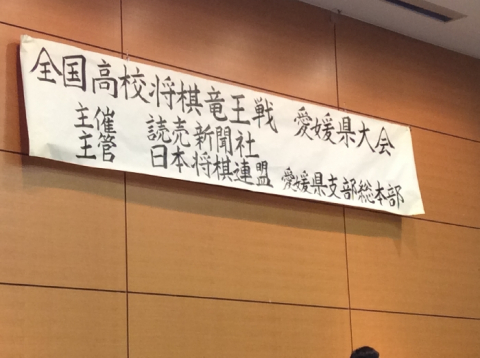 全国高校将棋竜王戦 愛媛県大会
主催 読売新聞社
主管 日本将棋連盟 愛媛県支部総本部